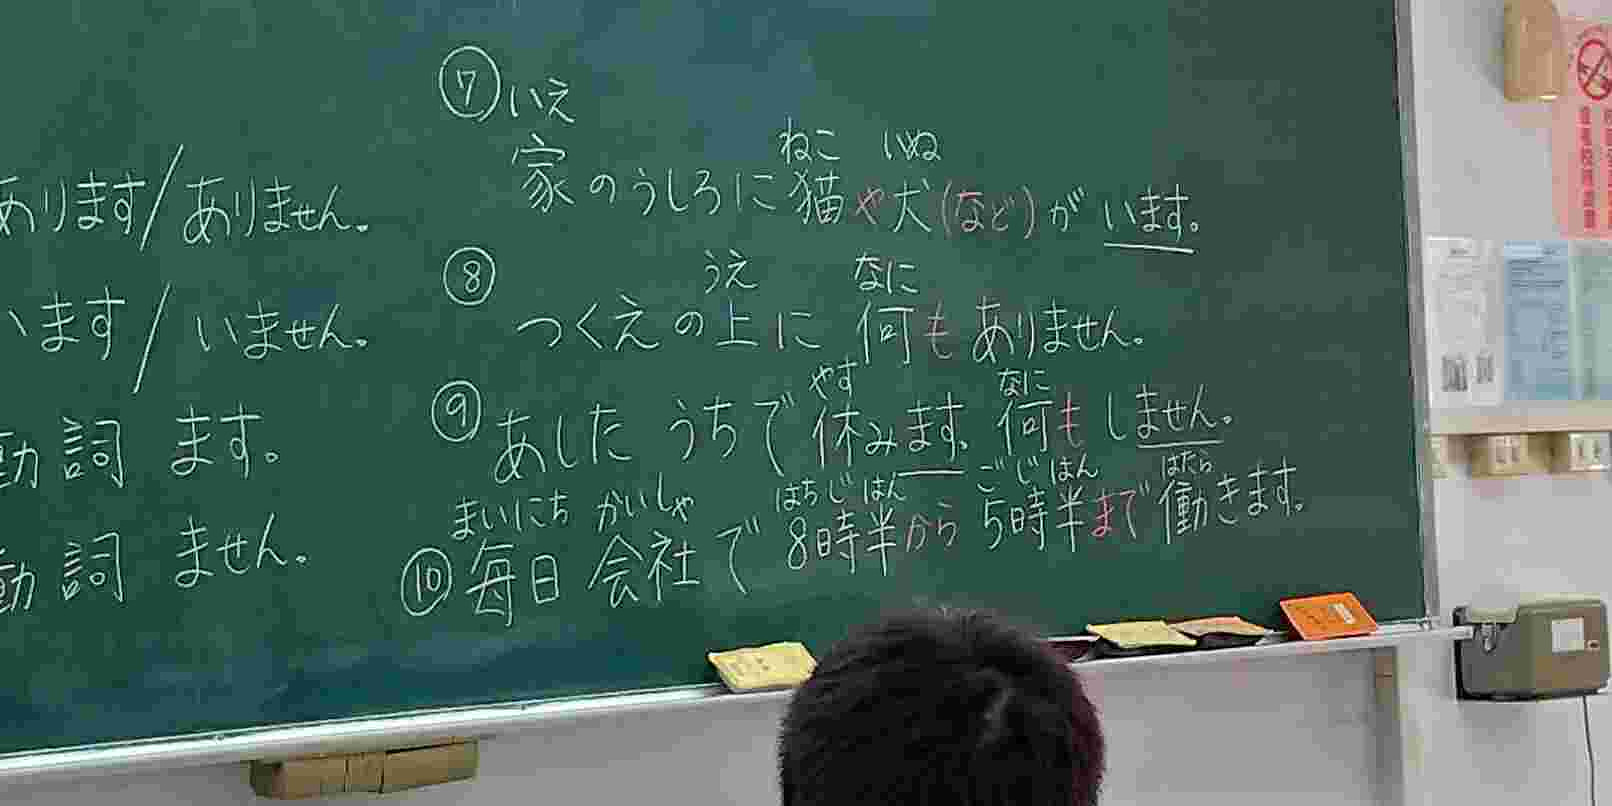 あります/ありません。
います/いません。
動詞 ます。
動詞 ません。
⑦いえ
ねこ いぬ
家のうしろに猫や犬(など)がいます。
⑧
うえ なに
つくえの上に何もありません。
やす なに
⑨あした うちで休みます。何もしません。
まいにち かいしゃ はちじはん ごじはん はたら
⑩毎日会社で8時半から5時半まで働きます。